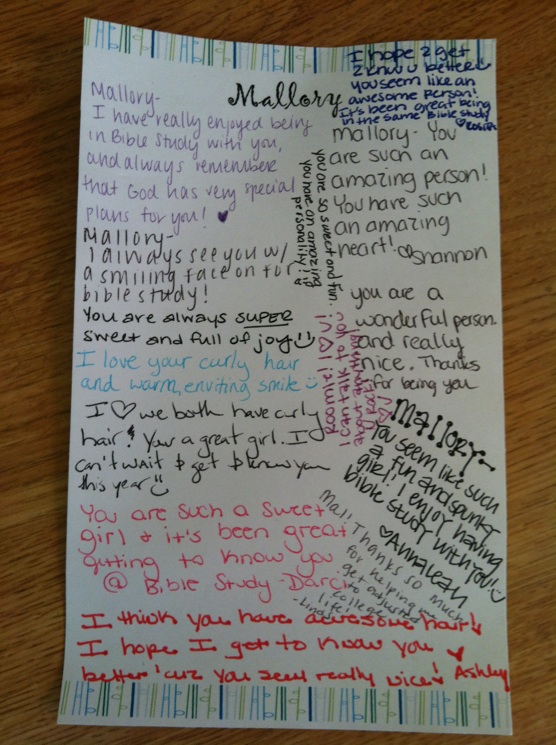 Mallory
I hope 2 get
2 know u better
you seem like an
awesome person!
It's been great being
in the same Bible study
Mallory-
I have really enjoyed being
in Bible Study with you,
and always remember
that God has very special
plans for you! ♥
mallory- You
are such an
amazing person!
You have such
an amazing
heart! ♡Shannon
you are so sweet and fun.
you have an amazing
personality!! :)
Mallory-
I always see you w/
a smiling face on for
bible study!
You are always SUPER
sweet and full of joy :)
I love your curly hair
and warm, enviting smile :)
you are a
wonderful person
and really
nice. Thanks
for being you
Roomie! I ♡ U!
I can talk to you
about anything!
U Rock!
I ♡ we both have curly
hair! Your a great girl. I
can't wait to get to know you
this year :)
MALLORY-
You seem like such
a fun and spunky
girl! I enjoy having
bible study with you! :)
♡ANNALEAH
You are such a sweet
girl & it's been great
getting to know you
@ Bible Study -Darci
Mal! Thanks so much
for helping me
get adjusted
to college
life!
-Lindsey
I think you have awesome hair!
I hope I get to know you
better 'cuz you seem really nice! Ashley